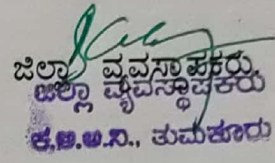 ಜಿಲ್ಲಾ ವ್ಯವಸ್ಥಾಪಕರು,
ಜಿಲ್ಲಾ ವ್ಯವಸ್ಥಾಪಕರು
ಕ.ಆ.ಅ.ನಿ., ತುಮಕೂರು